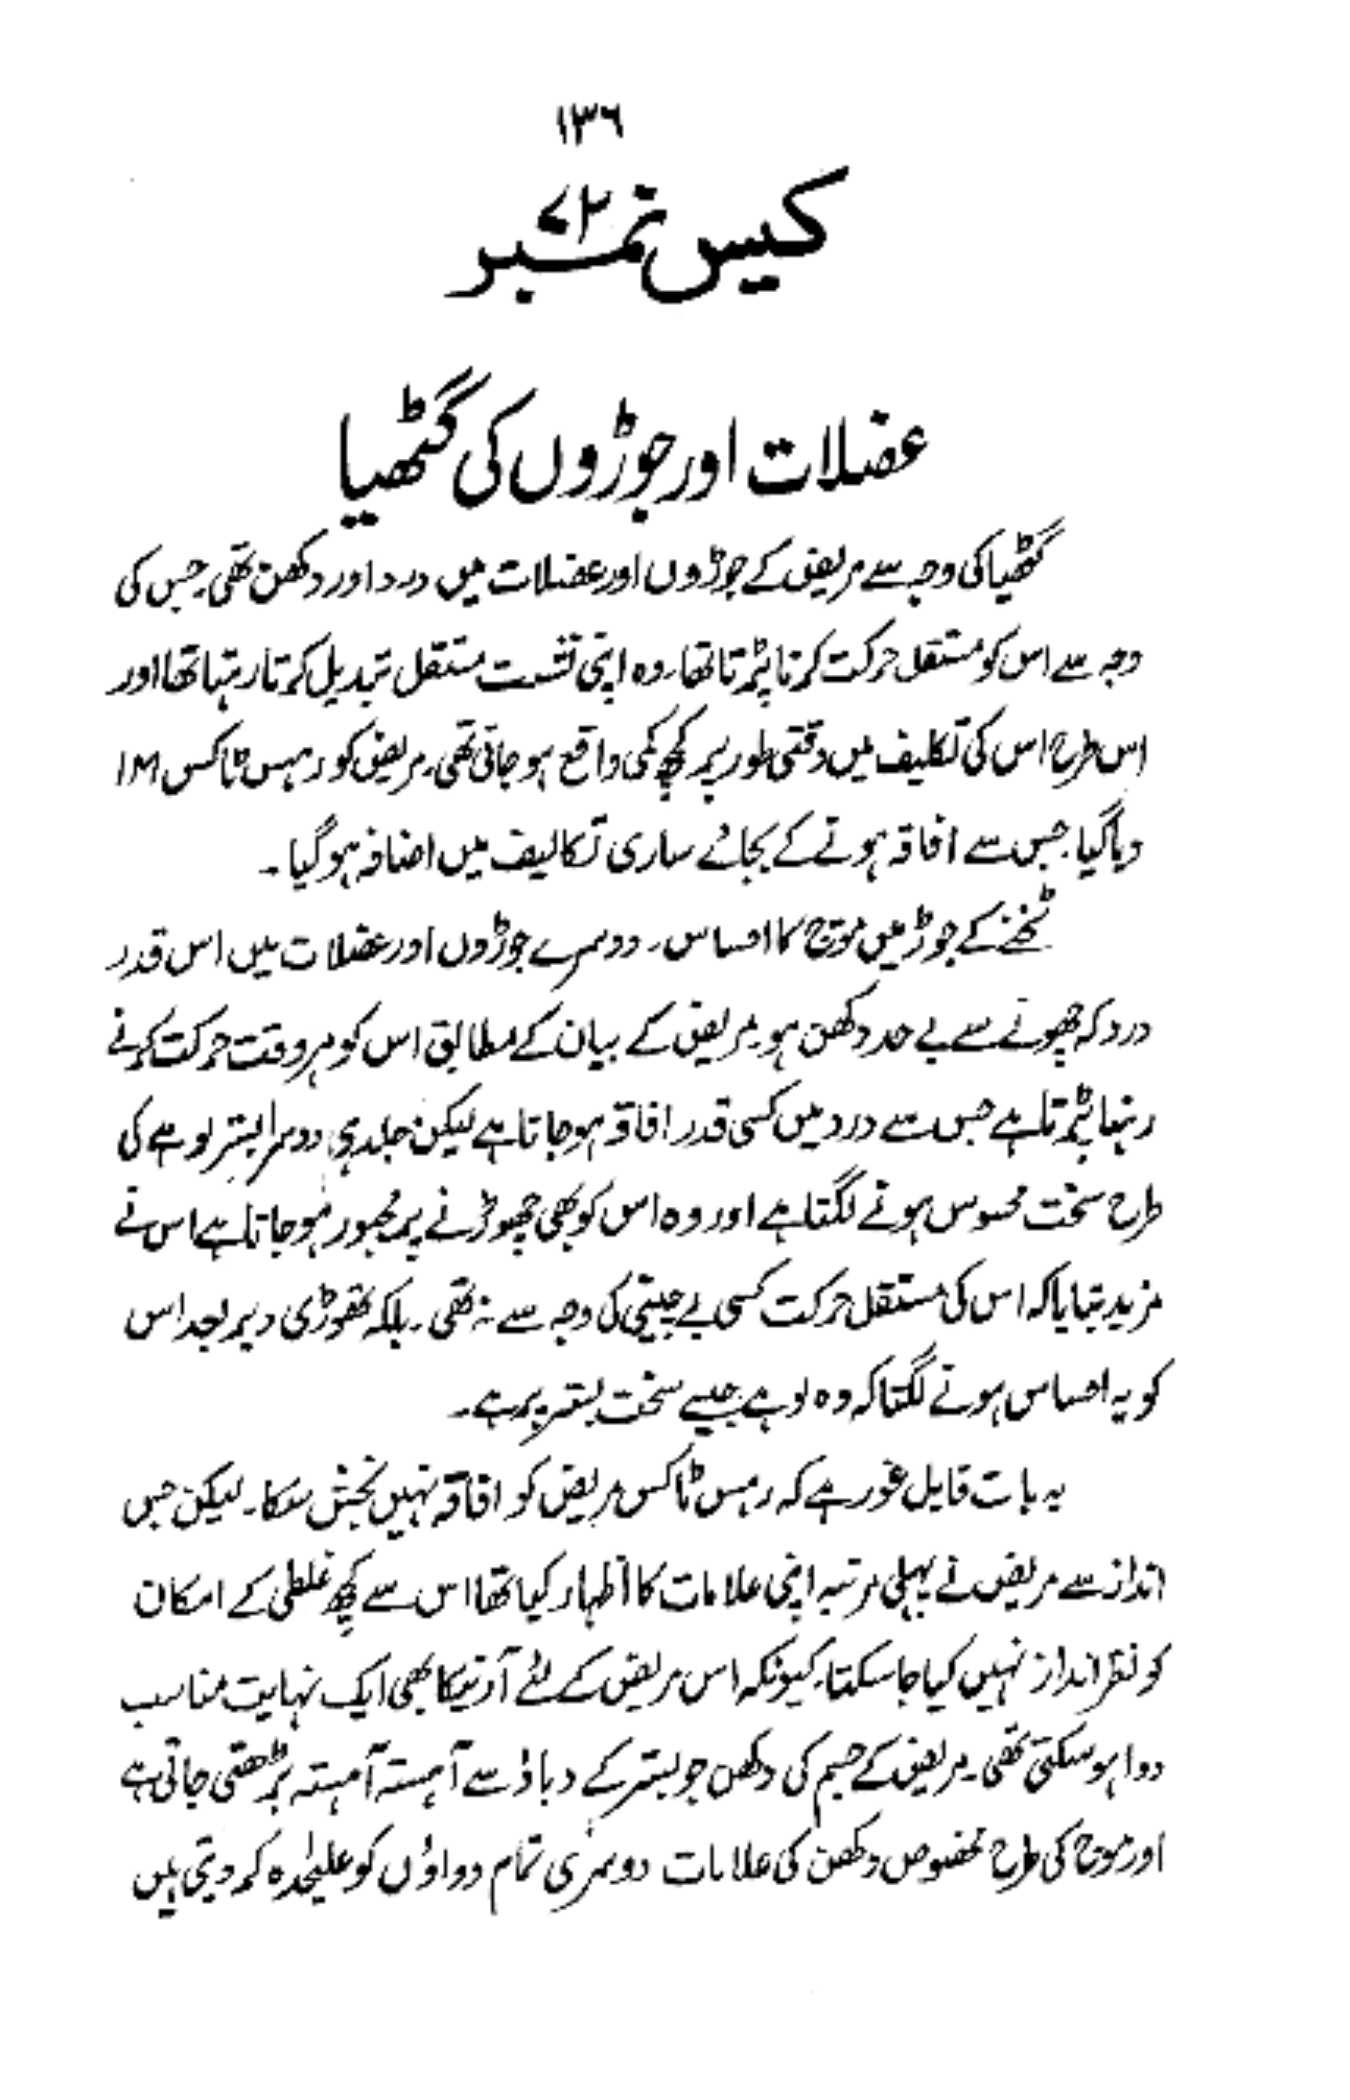 ۱۳۶
کیس نمبر ۷۲
عضلات اور جوڑوں کی گٹھیا
گٹھیا کی وجہ سے مریض کے جوڑوں اور عضلات میں درد اور دکھن تھی۔ جس کی
وجہ سے اس کو مستقل حرکت کرنا پڑتا تھا۔ وہ اپنی نشست مستقل تبدیل کرتا رہتا تھا اور
اس طرح اس کی تکلیف میں وقتی طور پر کچھ کمی واقع ہو جاتی تھی۔ مریض کو رہس ٹاکس 1M
دیا گیا جس سے افاقہ ہونے کے بجائے ساری تکالیف میں اضافہ ہو گیا۔
ٹخنے کے جوڑ میں موچ کا احساس۔ دوسرے جوڑوں اور عضلات میں اس قدر
درد کہ چھونے سے بے حد دکھن ہو۔ مریض کے بیان کے مطابق اس کو ہر وقت حرکت کرتے
رہنا پڑتا ہے جس سے درد میں کسی قدر افاقہ ہو جاتا ہے لیکن جلد ہی دوسرا بستر لوہے کی
طرح سخت محسوس ہونے لگتا ہے اور وہ اس کو بھی چھوڑنے پر مجبور ہو جاتا ہے اس نے
مزید بتایا کہ اس کی مستقل حرکت کسی بے چینی کی وجہ سے نہ تھی۔ بلکہ تھوڑی دیر بعد اس
کو یہ احساس ہونے لگتا کہ وہ لوہے جیسے سخت بستر پر ہے۔
یہ بات قابل غور ہے کہ رہس ٹاکس مریض کو افاقہ نہیں بخش سکا۔ لیکن جس
انداز سے مریض نے پہلی مرتبہ اپنی علامات کا اظہار کیا تھا اس سے کچھ غلطی کے امکان
کو نظر انداز نہیں کیا جا سکتا۔ کیونکہ اس مریض کے لئے آرنیکا بھی ایک نہایت مناسب
دوا ہو سکتی تھی۔ مریض کے جسم کی دکھن جو بستر کے دباؤ سے آہستہ آہستہ بڑھتی جاتی ہے
اور موچ کی طرح مخصوص دکھن کی علامات دوسری تمام دواؤں کو علیحدہ کر دیتی ہیں